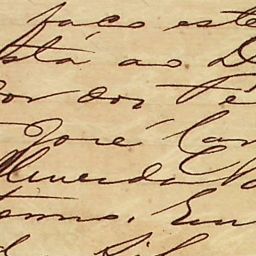 faço este
está ao D
dor dos Fe
José Car
Almeida No
termo. Eu